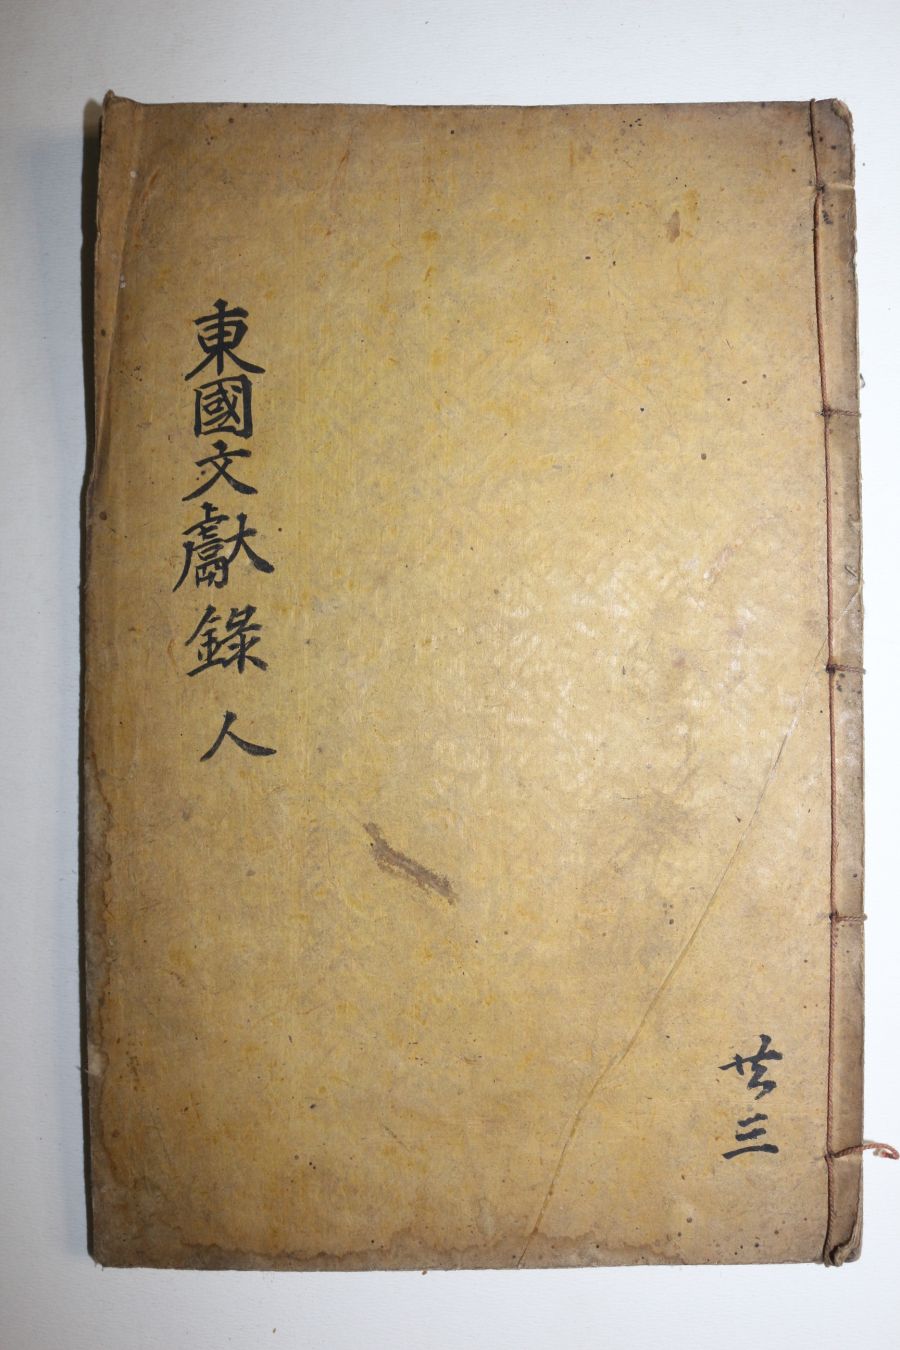 東國文獻錄 人
共三